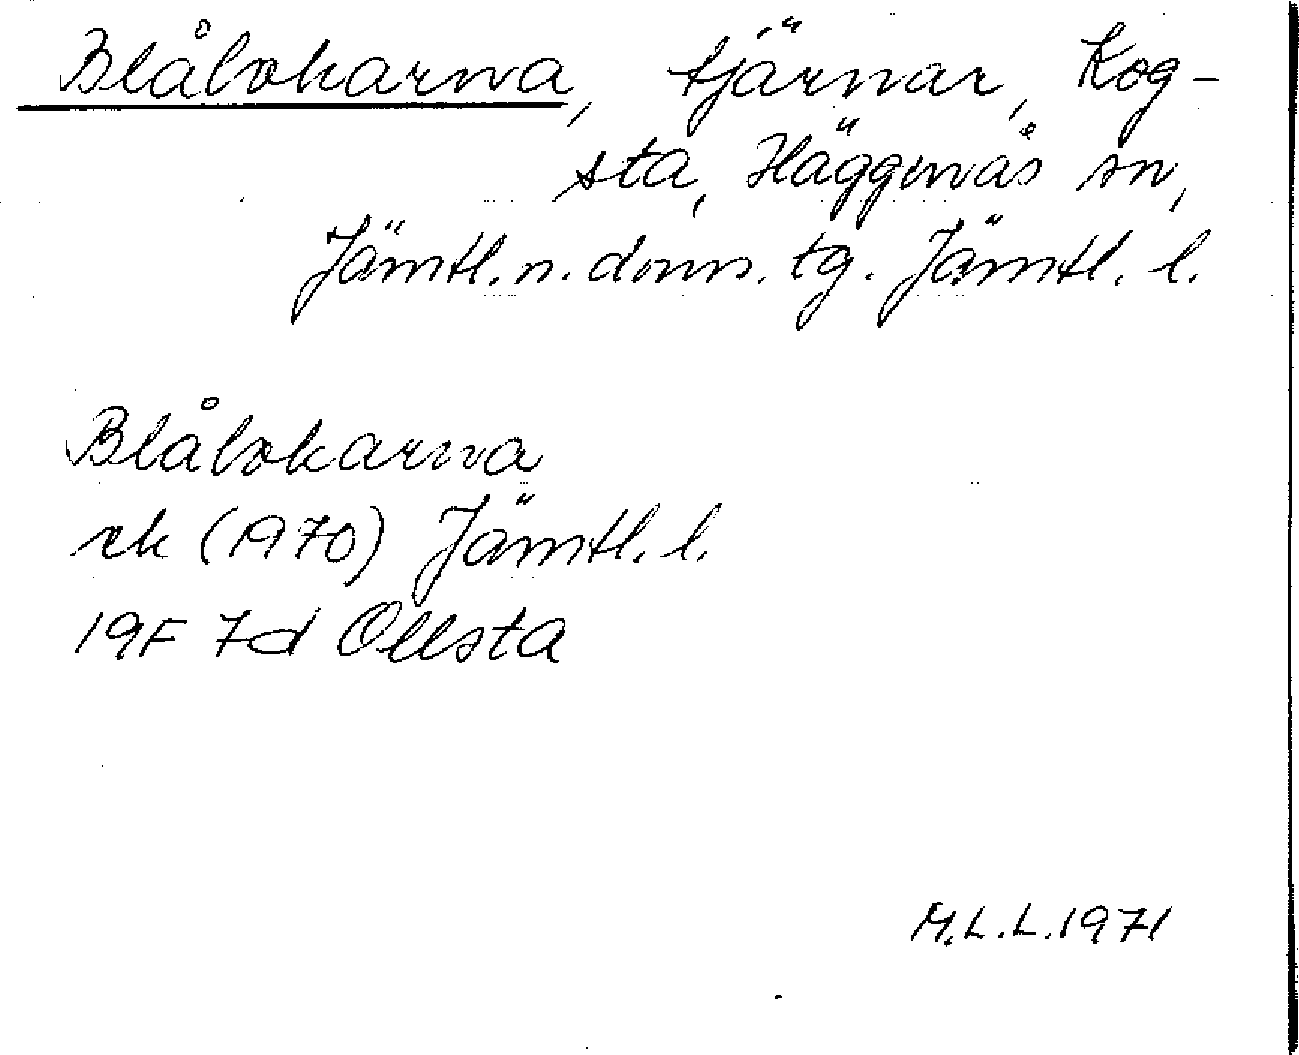 Blåbokarna, tjärnar, Kog-
sta, Häggenås sn,
Jämtl. n. doms. tg. Jämtl. l.
Blåbokarna
rk (1970) Jämtl. l.
19F 7d Ollsta
M.L.L. 1971